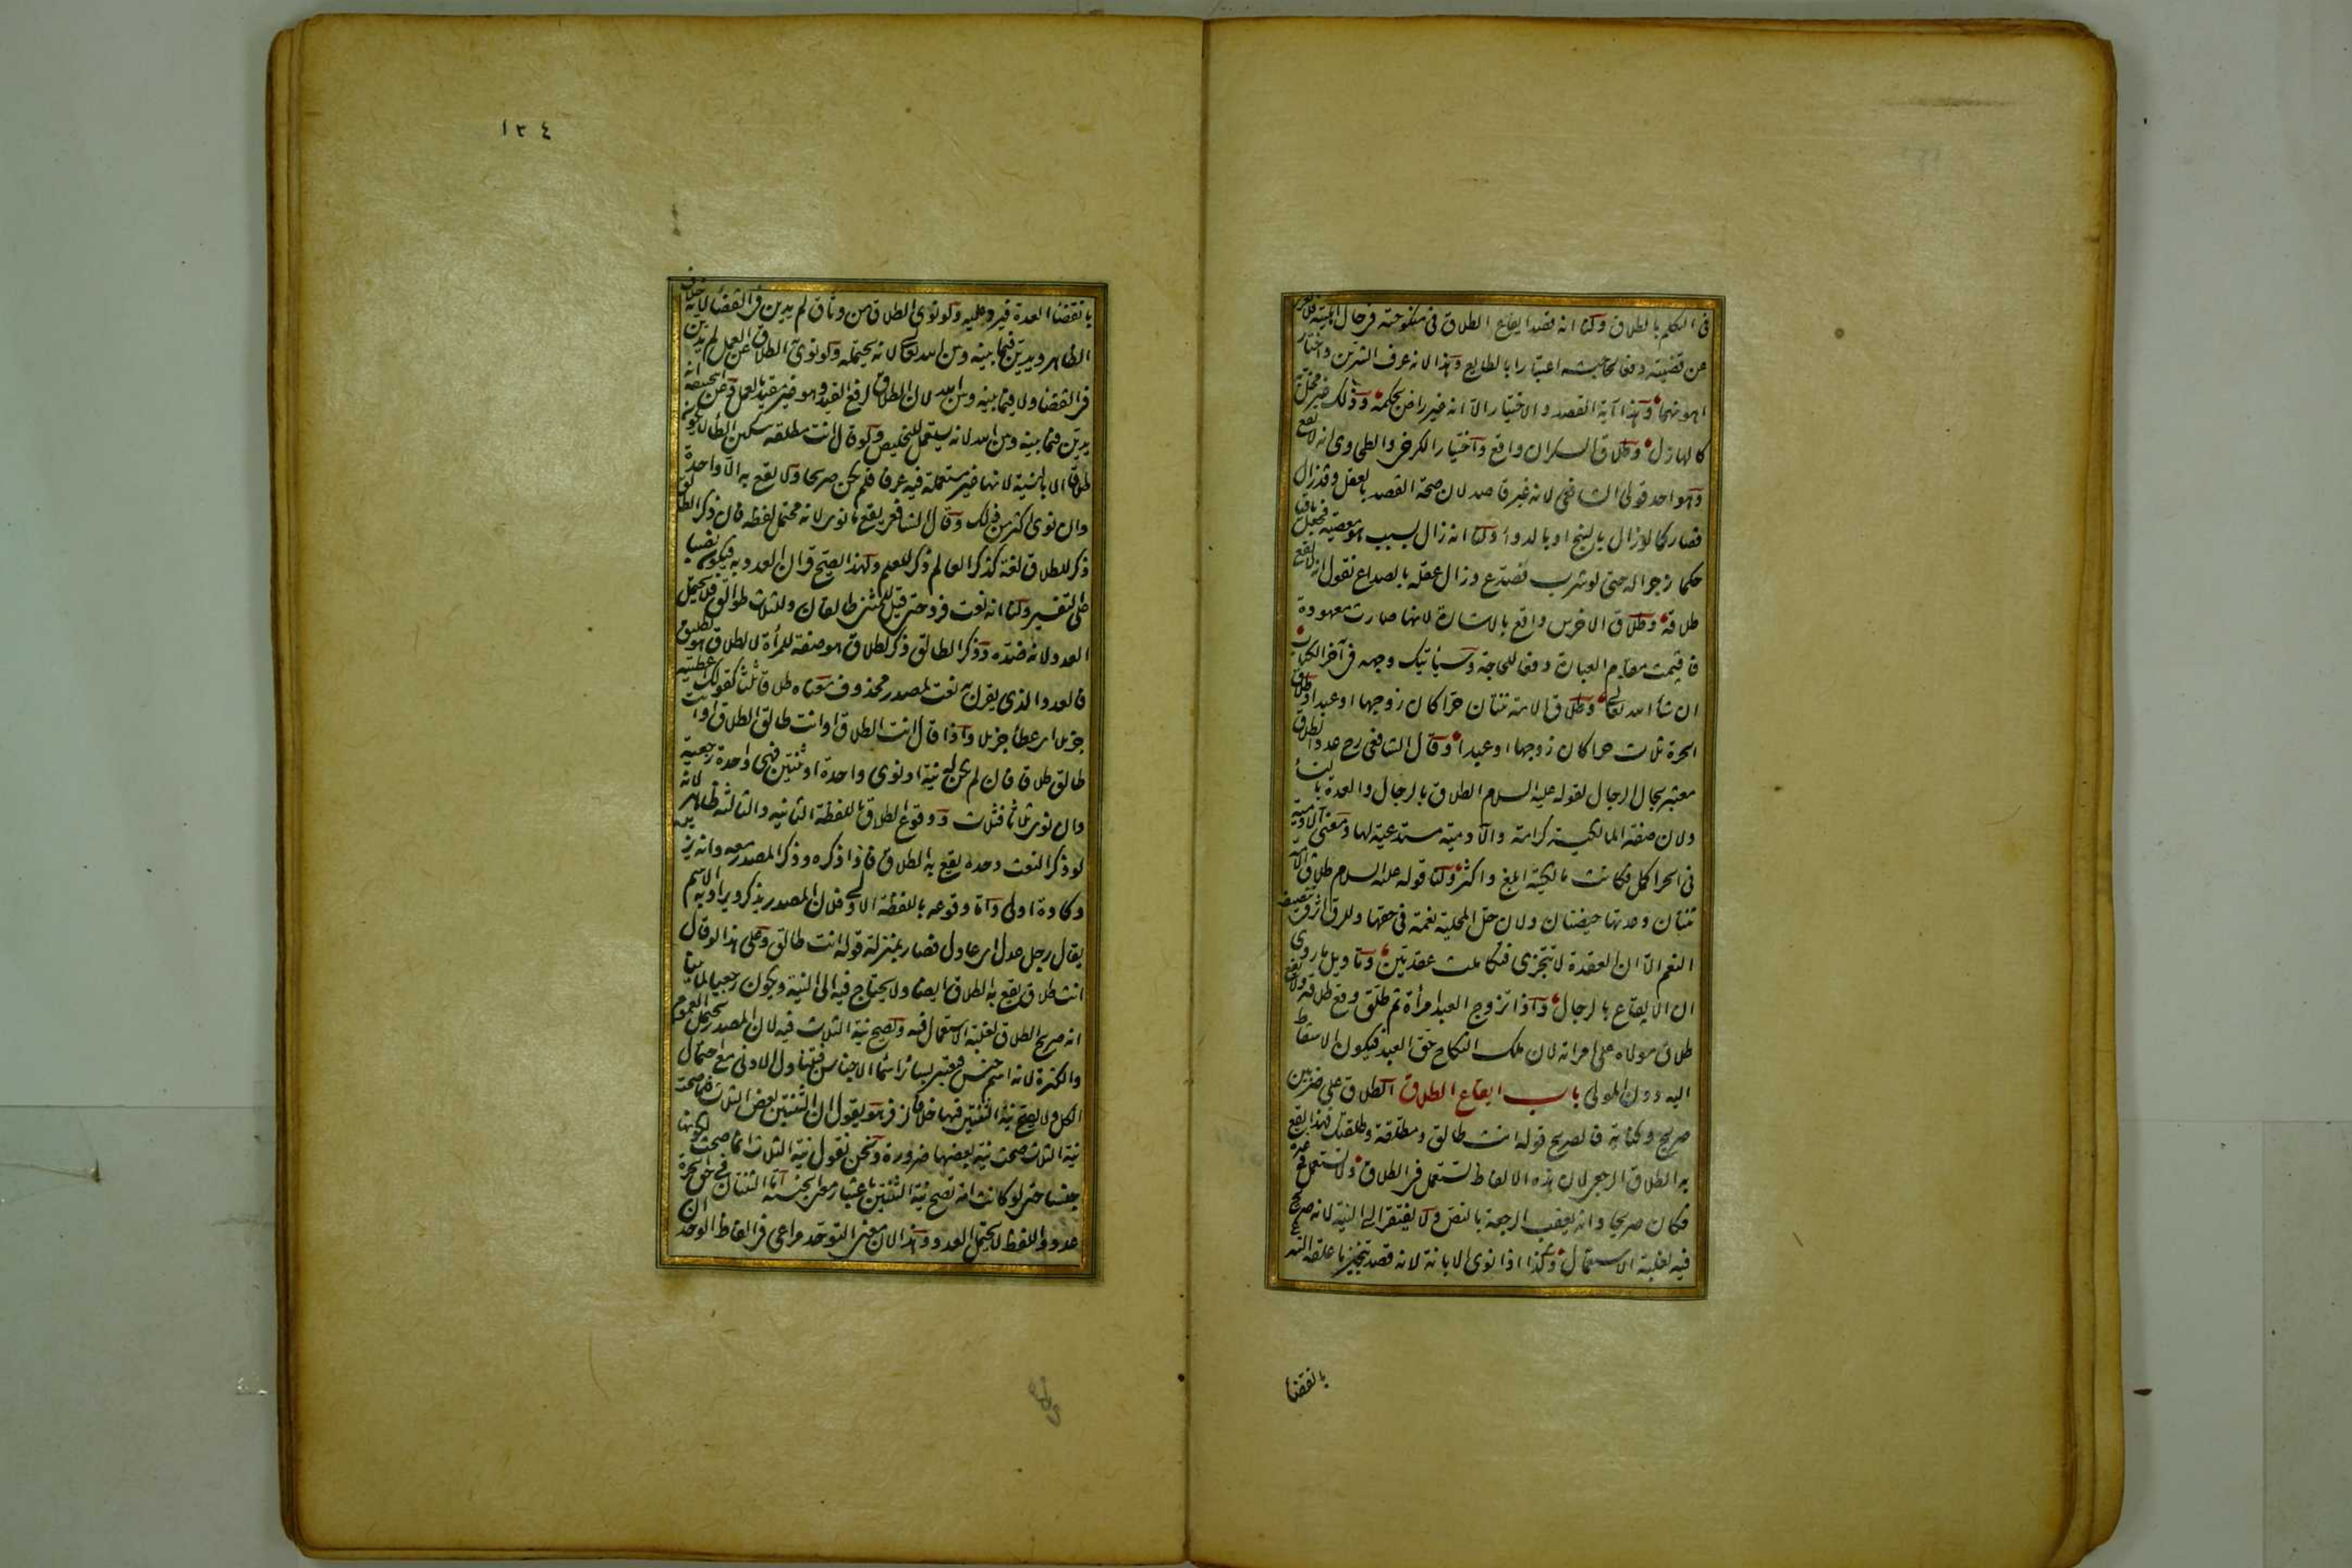 فى التكلم بالطلاق ولنا انه قصد ايقاع الطلاق فى منكوحته فى حال اهليته فلا يعرى
عن قضيته دفعا لحاجته اعتبارا بالطايع وهذا لانه عرف الشرين واختار
اهونهما وهذا آية القصد والاختيار الا انه غير راض بحكمه وذلك غير مخل به
كالهازل وطلاق السكران واقع واختيار الكرخى والطحاوى انه لا يقع
وهو احد قولى الشافعى لانه غير قاصد لان صحة القصد بالعقل وقد زال
فصار كالو زال بالبنج او بالدواء ولنا انه زال بسبب هو معصية فجعل باقيا
حكما زجرا له حتى لو شرب فصدع وزال عقله بالصداع نقول انه لا يقع
طلاقه وطلاق الاخرس واقع بالاشارة لانها صارت معهودة
فاقيمت مقام العبارة دفعا للحاجة وسياتيك وجهه فى آخر الكتاب
ان شاء الله تعالى وطلاق الامة ثنتان حرا كان زوجها او عبدا وطلاق
الحرة ثلاث حرا كان زوجها او عبدا وقال الشافعى رح عدد الطلاق
معتبر بحال الرجال لقوله عليه السلام الطلاق بالرجال والعدة بالنساء
ولان صفة المالكية كرامة والآدمية مستدعية لها ومعنى الآدمية
فى الحر اكمل فكانت مالكيته ابلغ واكثر ولنا قوله عليه السلام طلاق الامة
ثنتان وعدتها حيضتان ولان حل المحلية نعمة فى حقها وللرق اثر فى تنصيف
النعم الا ان العقدة لا تتجزى فتكاملت عقدتين وتاويل ما روى
ان الايقاع بالرجال واذا تزوج العبد امرأة ثم طلق وقع طلاقه ولا يقع
طلاق مولاه على امراته لان ملك النكاح حق العبد فيكون الاسقاط
اليه دون المولى باب ايقاع الطلاق الطلاق على ضربين
صريح وكناية فالصريح قوله انت طالق ومطلقة وطلقتك فهذا يقع
به الطلاق الرجعى لان هذه الالفاظ تستعمل فى الطلاق ولا تستعمل فى غيره
فكان صريحا وانه يعقب الرجعة بالنص ولا يفتقر الى النية لانه صريح
فيه لغلبة الاستعمال وكذا اذا نوى الابانة لانه قصد تنجيز ما علقه الشرع
بانقضاء
١٣٤
بانقضاء العدة فيرد عليه ولو نوى الطلاق من وثاق لم يدين فى القضاء لانه خلاف
الظاهر ويدين فيما بينه وبين الله تعالى لانه يحتمله ولو نوى الطلاق عن العمل لم يدين
فى القضاء ولا فيما بينه وبين الله لان الطلاق لرفع القيد وهو غير مقيد بالعمل وعن ابى حنيفة انه
يدين فيما بينه وبين الله لانه يستعمل للتخليص ولو قال انت مطلقة بتسكين الطاء لا يكون
طلاقا الا بالنية لانها غير مستعملة فيه عرفا فلم يكن صريحا ولا يقع به الا واحدة
وان نوى اكثر من ذلك وقال الشافعى يقع ما نوى لانه محتمل لفظه فان ذكر الطالق
ذكر للطلاق لغة كذكر العالم ذكر للعلم ولهذا يصح قران العدد به فيكون نصبا
على التفسير ولنا انه نعت فرد حتى قيل للمثنى طالقان وللثلاث طوالق فلا يحتمل
العدد لانه ضده وذكر الطالق ذكر لطلاق هو صفة للمرأة لا لطلاق هو تطليق
فالعدد الذى يقرن به نعت لمصدر محذوف معناه طلاقا ثلثا كقولك اعطيته
جزيلا اى عطاء جزيلا واذا قال انت الطلاق او انت طالق الطلاق او انت
طالق طلاقا فان لم يكن له نية او نوى واحدة او ثنتين فهى واحدة رجعية
وان نوى ثلاثا فثلاث ووقوع الطلاق باللفظة الثانية والثالثة ظاهر لانه
لو ذكر النعت وحده يقع به الطلاق فاذا ذكره وذكر المصدر معه وانه يزيده
وكادة اولى واما وقوعه باللفظة الاولى فلان المصدر يذكر ويراد به الاسم
يقال رجل عدل اى عادل فصار بمنزلة قوله انت طالق وعلى هذا لو قال
انت طلاق يقع به الطلاق ايضا ولا يحتاج فيه الى النية ويكون رجعيا لما بينا
انه صريح الطلاق لغلبة الاستعمال فيه وتصح نية الثلاث فيه لان المصدر يحتمل العموم
والكثرة لانه اسم جنس فيعتبر بسائر اسماء الاجناس فيتناول الادنى مع احتمال
الكل ولا يصح نية الثنتين فيها خلافا لزفر هو يقول ان الثنتين بعض الثلاث فلما صحت
نية الثلاث صحت نية بعضها ضرورة ونحن نقول نية الثلاث انما صحت لكونها
جنسا حتى لو كانت امة تصح نية الثنتين باعتبار معنى الجنسية اما الثنتان فى حق الحرة
عدد واللفظ لا يحتمل العدد وهذا لان معنى التوحد مراعى فى الفاظ الوحدان